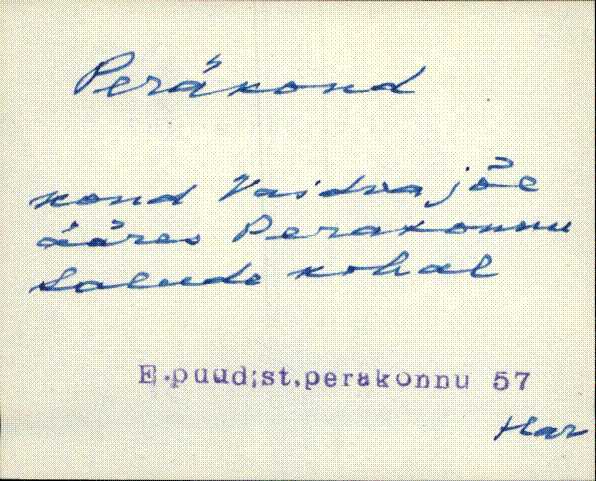 Peräkond
kond Vaidva jõe
ääres Perakonnu
talude kohal
E.puudist,perakonnu 57
Har